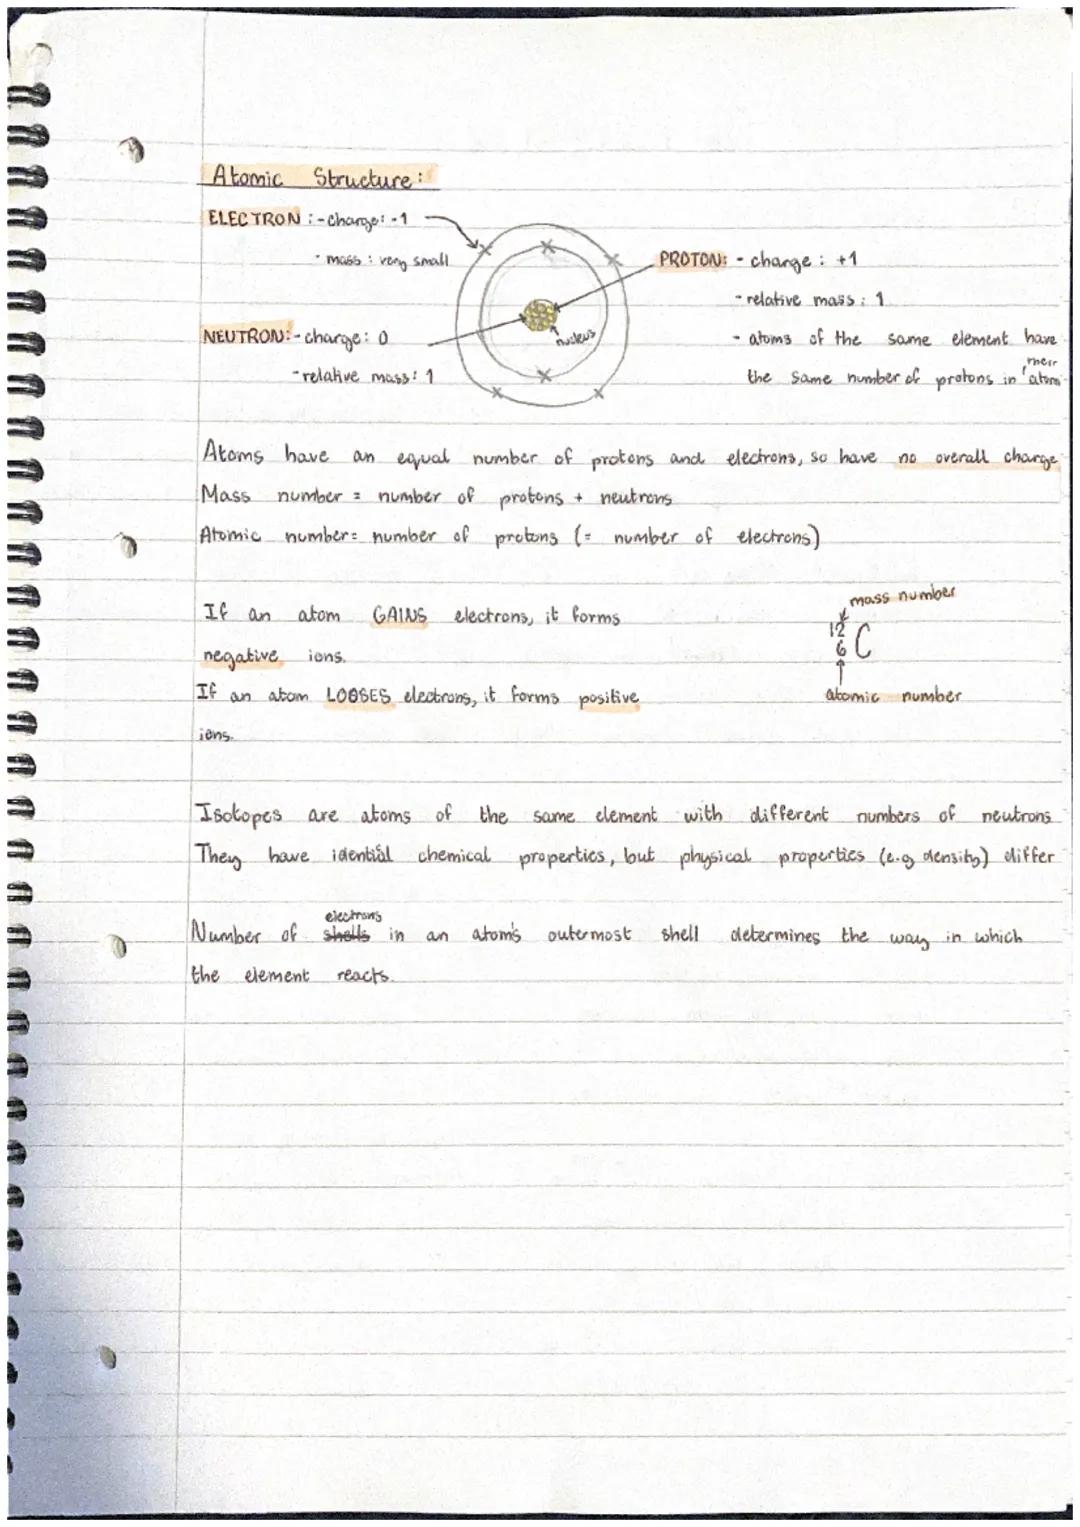 Atomic Structure:
ELECTRON :- charge: -1
- mass : very small
PROTON: - charge : +1
- relative mass : 1
NEUTRON:- charge: 0
nucleus
- atoms of the same element have
- relative mass: 1
their
the same number of protons in atom
Atoms have an equal number of protons and electrons, so have no overall charge
Mass number = number of protons + neutrons
Atomic number= number of protons (= number of electrons)
mass number
If an atom GAINS electrons, it forms
12
6 C
negative ions.
If an atom LOOSES electrons, it forms positive
atomic number
ions.
Isotopes are atoms of the same element with different numbers of neutrons
They have idential chemical properties, but physical properties (e.g density) differ
electrons
Number of shells in an atom's outermost shell determines the way in which
the element reacts.